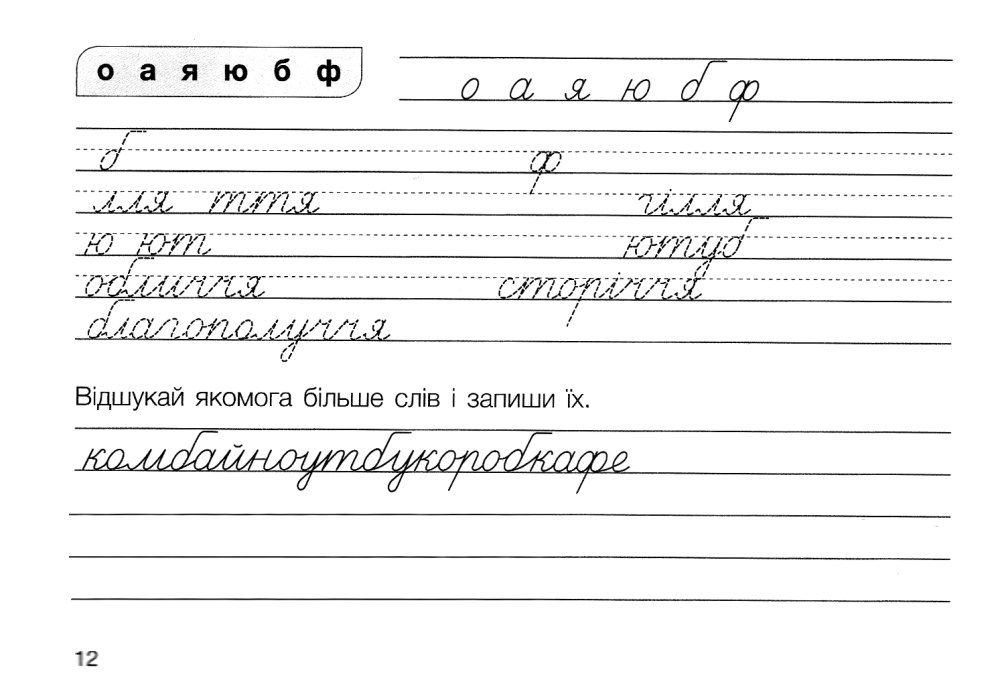 о а я ю б ф
о а я ю б ф
б ф
лля ття гілля
ю ют ютуб
обличчя сторіччя
благополуччя
Відшукай якомога більше слів і запиши їх.
комбайноутбукоробкафе
12